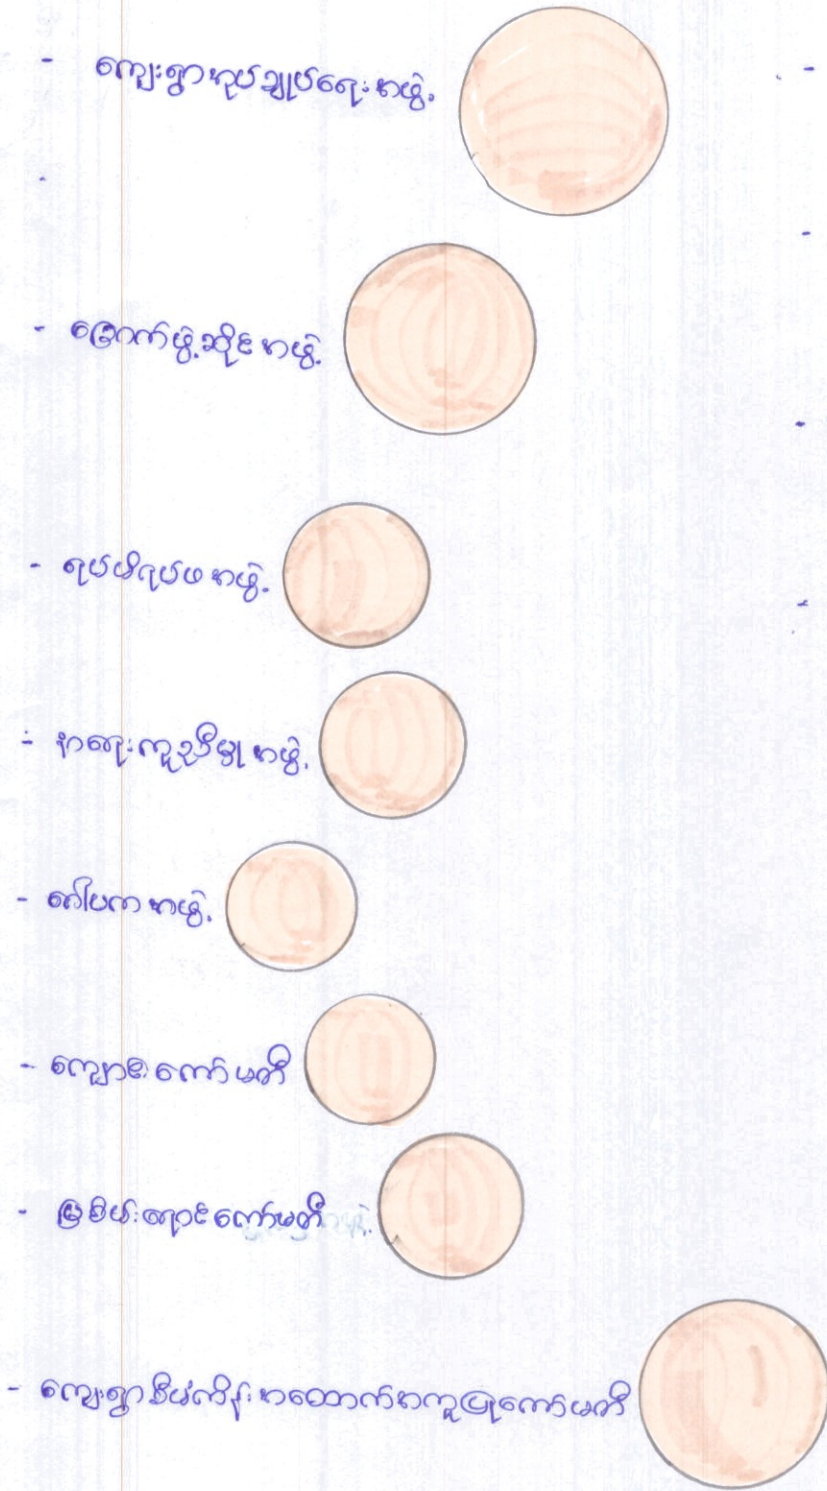 - ကျေးရွာအုပ်ချုပ်ရေးအဖွဲ့
- မြောက်ဖွဲ့ဆိုင်အဖွဲ့
- ရပ်မိရပ်ဖအဖွဲ့
- နာရေးကူညီမှုအဖွဲ့
- ဂေါပကအဖွဲ့
- ကျောင်းကော်မတီ
- မြစိမ်းရောင်ကော်မတီ
- ကျေးရွာစီမံကိန်းအထောက်အကူပြုကော်မတီ